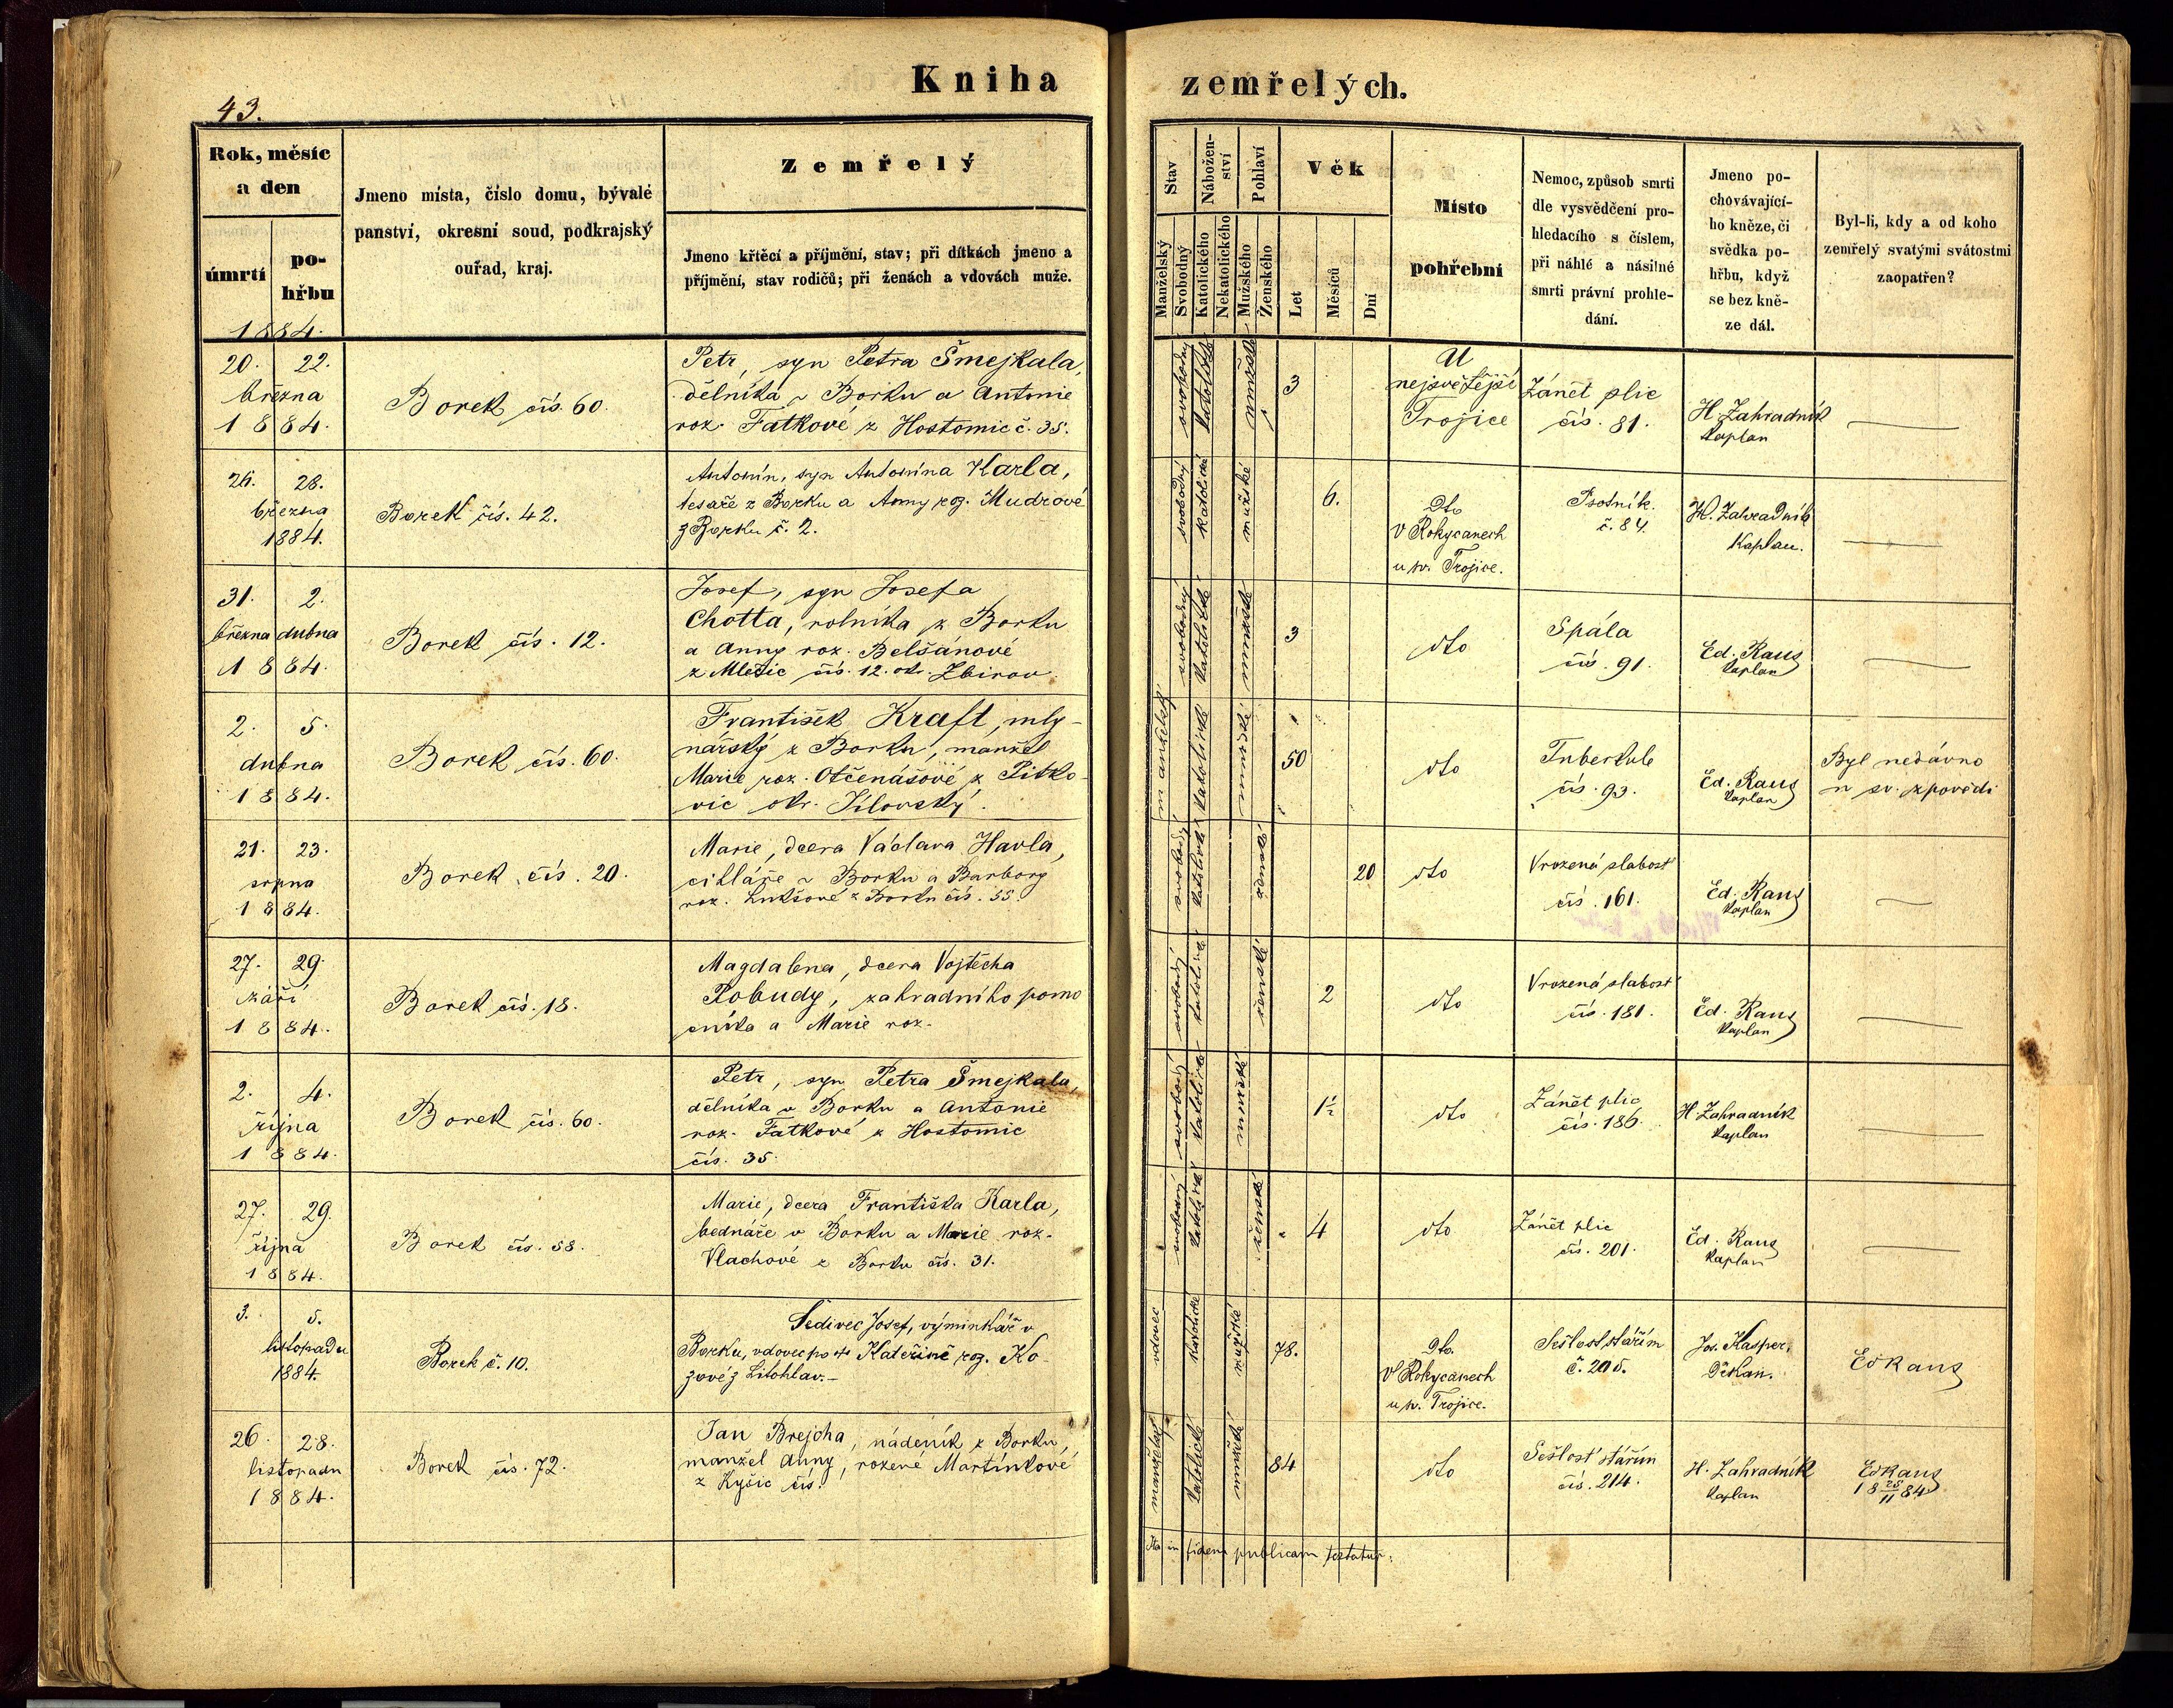 Kniha zemřelých.
43.
Rok, měsíc
a den
úmrtí
po-
hřbu
Jmeno místa, číslo domu, bývalé
panství, okresní soud, podkrajský
ouřad, kraj.
Zemřelý
Jmeno křtěcí a příjmění, stav; při dítkách jmeno a
příjmění, stav rodičů; při ženách a vdovách muže.
Stav
Manželský
Svobodný
Nábožen-
ství
Katolického
Nekatolického
Pohlaví
Mužského
Ženského
Věk
Let
Měsíců
Dní
Místo
pohřební
Nemoc, způsob smrti
dle vysvědčení pro-
hledacího s číslem,
při náhlé a násilné
smrti právní prohle-
dání.
Jmeno po-
chovávající-
ho kněze, či
svědka po-
hřbu, když
se bez kně-
ze dál.
Byl-li, kdy a od koho
zemřelý svatými svátostmi
zaopatřen?
1884.
20. 22.
března
1884.
Borek čís. 60.
Petr, syn Petra Šmejkala,
dělníka v Borku a Antonie
roz. Fatkové z Hostomic č. 35.
svobodný
katolické
mužské
3
U
nejsvětější
Trojice
Zánět plic
čís. 81.
H. Zahradník
kaplan
26. 28.
března
1884.
Borek čís. 42.
Antonín, syn Antonína Karla,
tesaře z Borku a Anny roz. Mudrové
z Borku č. 2.
svobodný
katolické
mužské
6.
Dto
v Rokycanech
u sv. Trojice.
Psotník.
č. 84.
H. Zahradník
Kaplan.
31. 2.
března dubna
1884.
Borek čís. 12.
Josef, syn Josefa
Chotta, rolníka z Borku
a Anny roz. Belšánové
z Mlečic čís. 12. okr. Zbirov
svobodný
katolické
mužské
3
dto
Spála
čís. 91.
Ed. Raus
kaplan
2. 5.
dubna
1884.
Borek čís. 60.
František Kraft, mly-
nářský z Borku, manžel
Marie roz. Otčenášové z Pitko-
vic okr. Jílovský.
manželský
katolické
mužské
50
dto
Tuberkule
čís. 93.
Ed. Raus
kaplan
Byl nedávno
u sv. zpovědi
21. 23.
srpna
1884.
Borek čís. 20.
Marie, dcera Václava Havla,
cihláře v Borku a Barbory
roz. Lukšové z Borku čís. 55.
svobodný
katolické
ženské
20
dto
Vrozená slabost
čís. 161.
Ed. Raus
kaplan
27. 29.
září
1884.
Borek čís. 18.
Magdalena, dcera Vojtěcha
Pobudy, zahradního pomo
cníka a Marie roz.
svobodný
katolické
ženské
2
dto
Vrozená slabost
čís. 181.
Ed. Raus
kaplan
2. 4.
října
1884.
Borek čís. 60.
Petr, syn Petra Šmejkala,
dělníka v Borku a Antonie
roz. Fatkové z Hostomic
čís. 35.
svobodný
katolické
mužské
1½
dto
Zánět plic
čís. 186.
H. Zahradník
kaplan
27. 29.
října
1884.
Borek čís. 58.
Marie, dcera Františka Karla,
bednáře v Borku a Marie roz.
Vlachové z Borku čís. 31.
svobodný
katolické
ženské
4
dto
Zánět plic
čís. 201.
Ed. Raus
kaplan
3. 5.
listopadu
1884.
Borek č. 10.
Šedivec Josef, výminkář v
Borku, vdovec po † Kateřině roz. Ko-
zové z Litohlav.-
vdovec
katolické
mužské
78.
Dto.
v Rokycanech
u sv. Trojice.
Sešlost stářím
č. 205.
Jos. Kasper,
Děkan.
Ed Raus
26. 28.
listopadu
1884.
Borek čís. 72.
Jan Brejcha, nádeník z Borku,
manžel Anny, rozené Martínkové
z Kyšic čís.
manželský
katolické
mužské
84
dto
Sešlost stářím
čís. 214.
H. Zahradník
kaplan
Ed Raus
18 25/11 84
Ita in fidem publicam testatur: